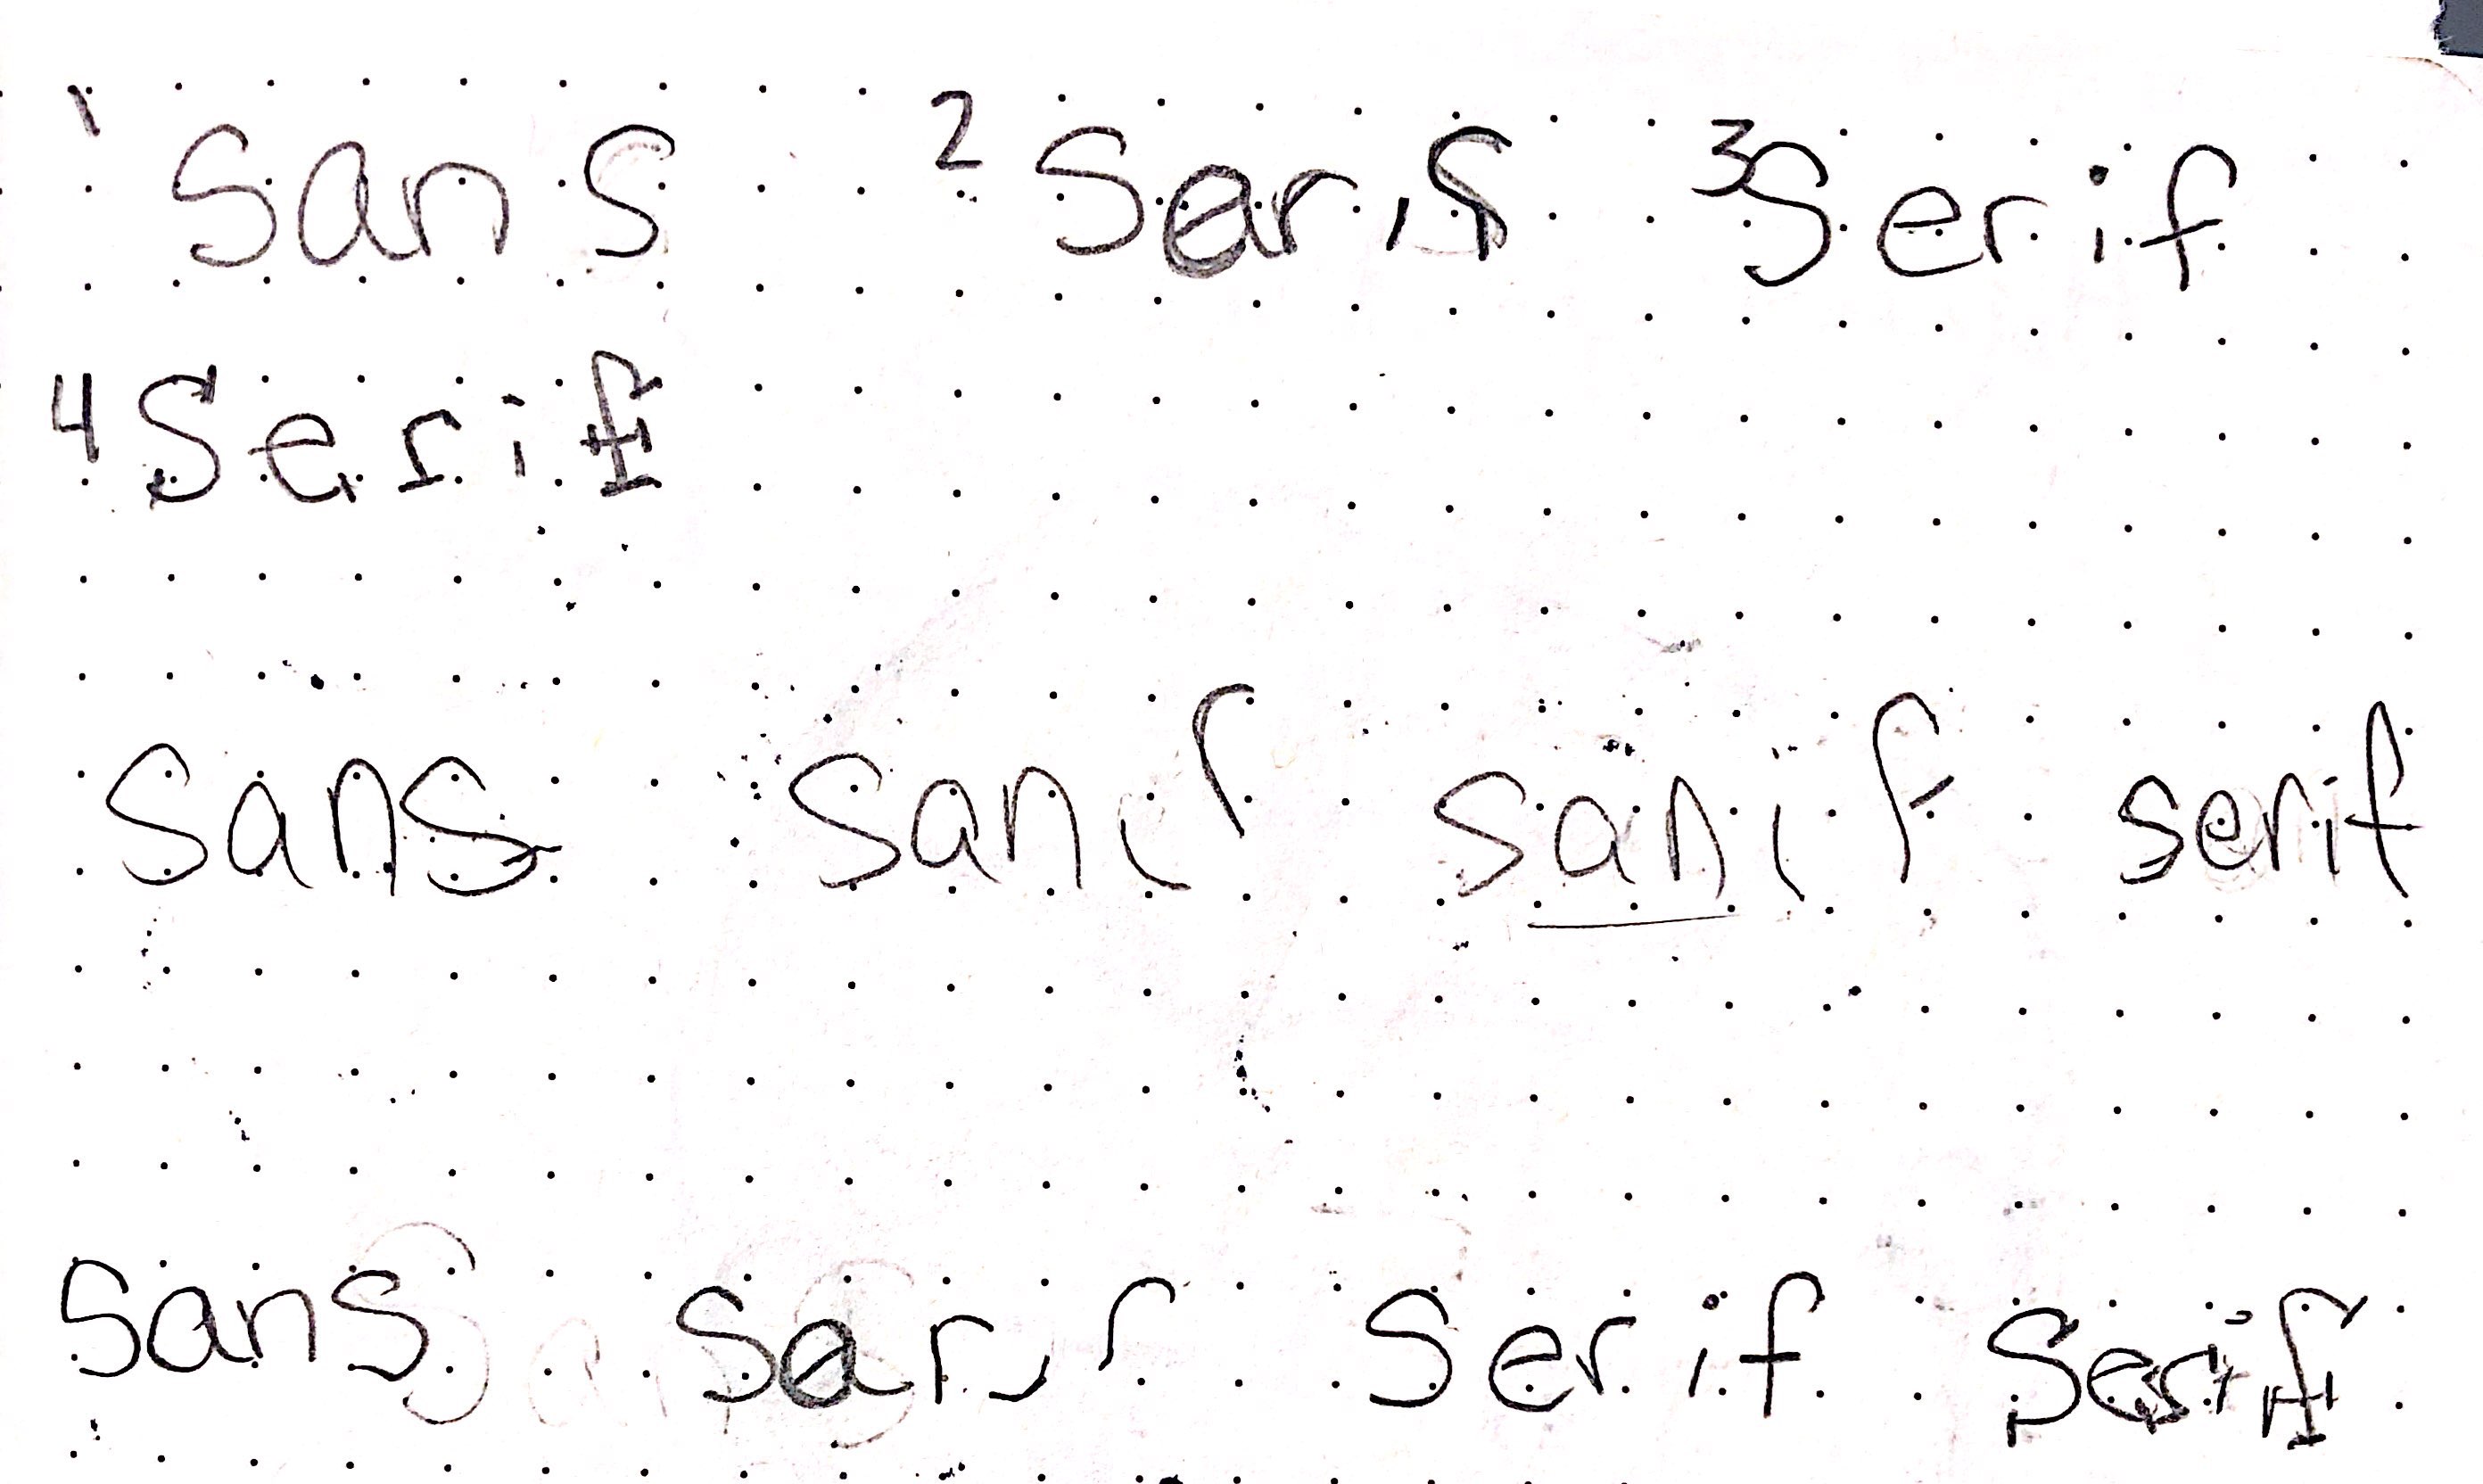 1 sans 2 serif 3 serif
4 Serif
sans sanif serif
sans serif serif